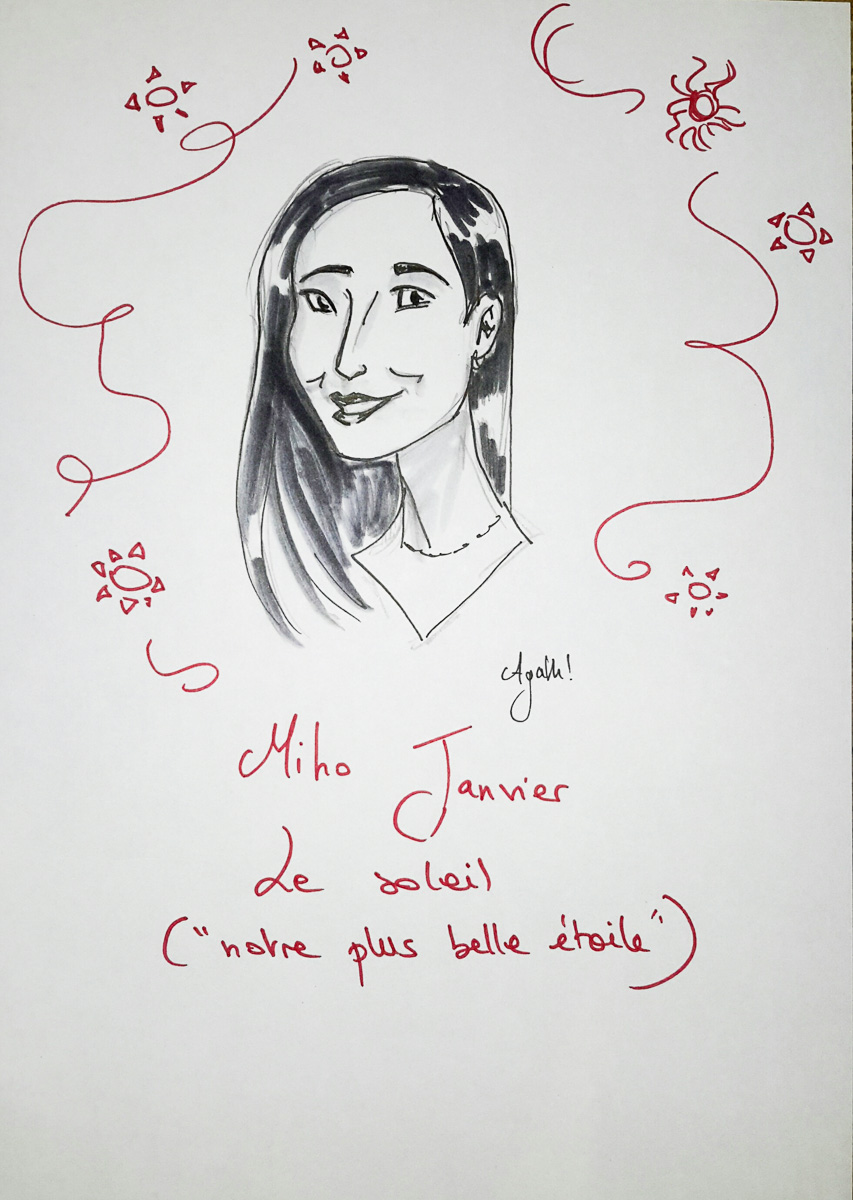 Agath!
Miho Janvier
Le soleil
("notre plus belle étoile")